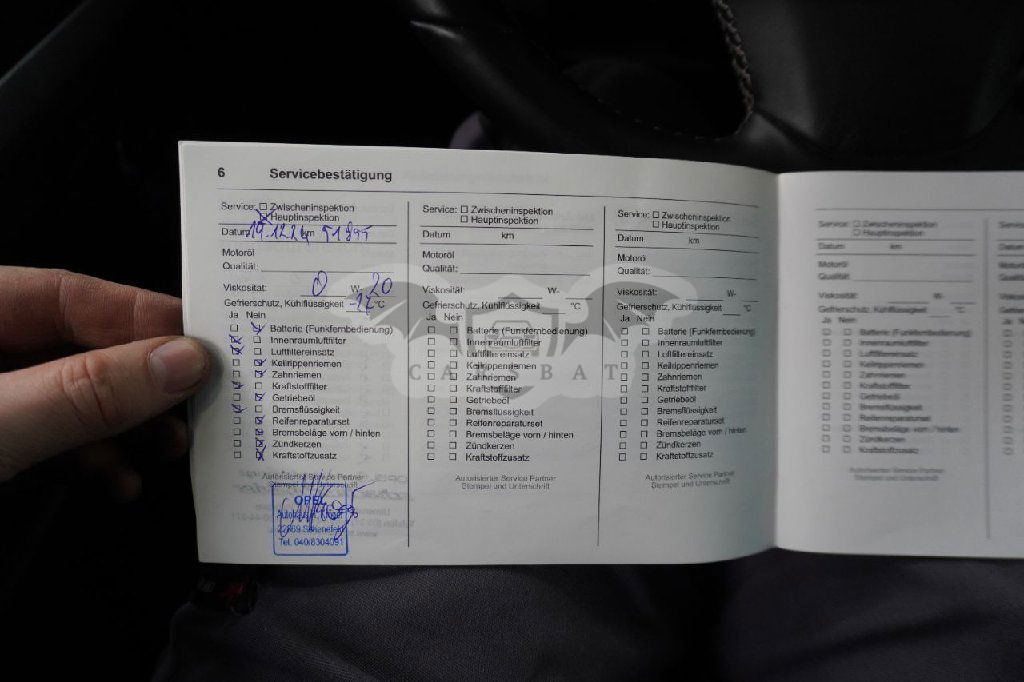 6 Servicebestätigung
Service: Zwischeninspektion
Hauptinspektion
Datum km
Motoröl
Qualität:
Viskosität: 0 W- 20
Gefrierschutz, Kühlflüssigkeit °C
Ja Nein
Batterie (Funkfernbedienung)
Innenraumluftfilter
Luftfiltereinsatz
Keilrippenriemen
Zahnriemen
Kraftstofffilter
Getriebeöl
Bremsflüssigkeit
Reifenreparaturset
Bremsbeläge vorn / hinten
Zündkerzen
Kraftstoffzusatz
Autorisierter Service Partner
OPEL
22869 Schenefeld
Tel. 040/8304091
Service: Zwischeninspektion
Hauptinspektion
Datum km
Motoröl
Qualität:
Viskosität: W-
Gefrierschutz, Kühlflüssigkeit °C
Ja Nein
Batterie (Funkfernbedienung)
Innenraumluftfilter
Luftfiltereinsatz
Keilrippenriemen
Zahnriemen
Kraftstofffilter
Getriebeöl
Bremsflüssigkeit
Reifenreparaturset
Bremsbeläge vorn / hinten
Zündkerzen
Kraftstoffzusatz
Autorisierter Service Partner
Stempel und Unterschrift
Service: Zwischeninspektion
Hauptinspektion
Datum km
Motoröl
Qualität:
Viskosität: W-
Gefrierschutz, Kühlflüssigkeit °C
Ja Nein
Batterie (Funkfernbedienung)
Innenraumluftfilter
Luftfiltereinsatz
Keilrippenriemen
Zahnriemen
Kraftstofffilter
Getriebeöl
Bremsflüssigkeit
Reifenreparaturset
Bremsbeläge vorn / hinten
Zündkerzen
Kraftstoffzusatz
Autorisierter Service Partner
Stempel und Unterschrift
Service: Zwischeninspektion
Hauptinspektion
Datum km
Motoröl
Qualität:
Viskosität: W-
Gefrierschutz, Kühlflüssigkeit °C
Ja Nein
Batterie (Funkfernbedienung)
Innenraumluftfilter
Luftfiltereinsatz
Keilrippenriemen
Zahnriemen
Kraftstofffilter
Getriebeöl
Bremsflüssigkeit
Reifenreparaturset
Bremsbeläge vorn / hinten
Zündkerzen
Kraftstoffzusatz
Autorisierter Service Partner
Stempel und Unterschrift
CARSBAT